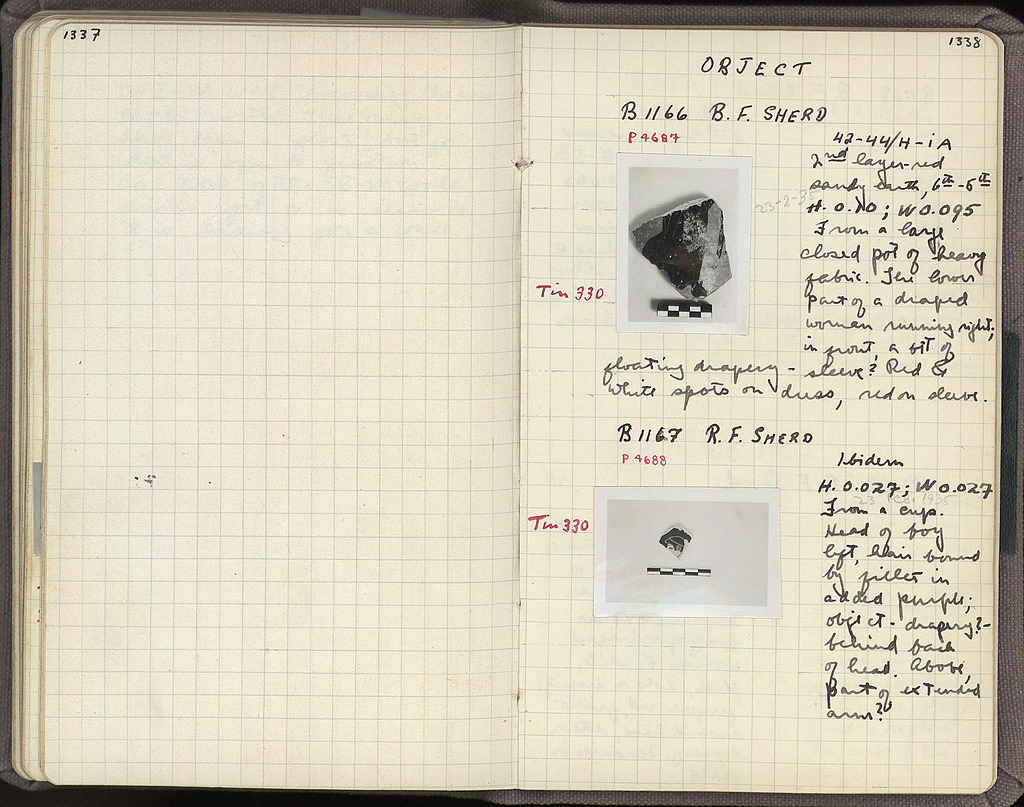 1337
1338
OBJECT
B 1166 B.F. SHERD
P 4687
42-44/H-IA
2nd layer-red
sandy earth, 6th-5th
23-2-35
H. 0.10; W 0.095
From a large
closed pot of heavy
fabric. The lower
part of a draped
woman running right;
in front, a bit of
floating drapery - sleeve? Red &
white spots on dress, red on sleeve.
Tin 330
B 1167 R.F. SHERD
P 4688
Ibidem
H. 0.027; W 0.027
23 FEB. 1935
From a cup.
Head of boy
left, hair bound
by fillet in
added purple;
object - drapery? -
behind back
of head. Above,
part of extended
arm?
Tin 330